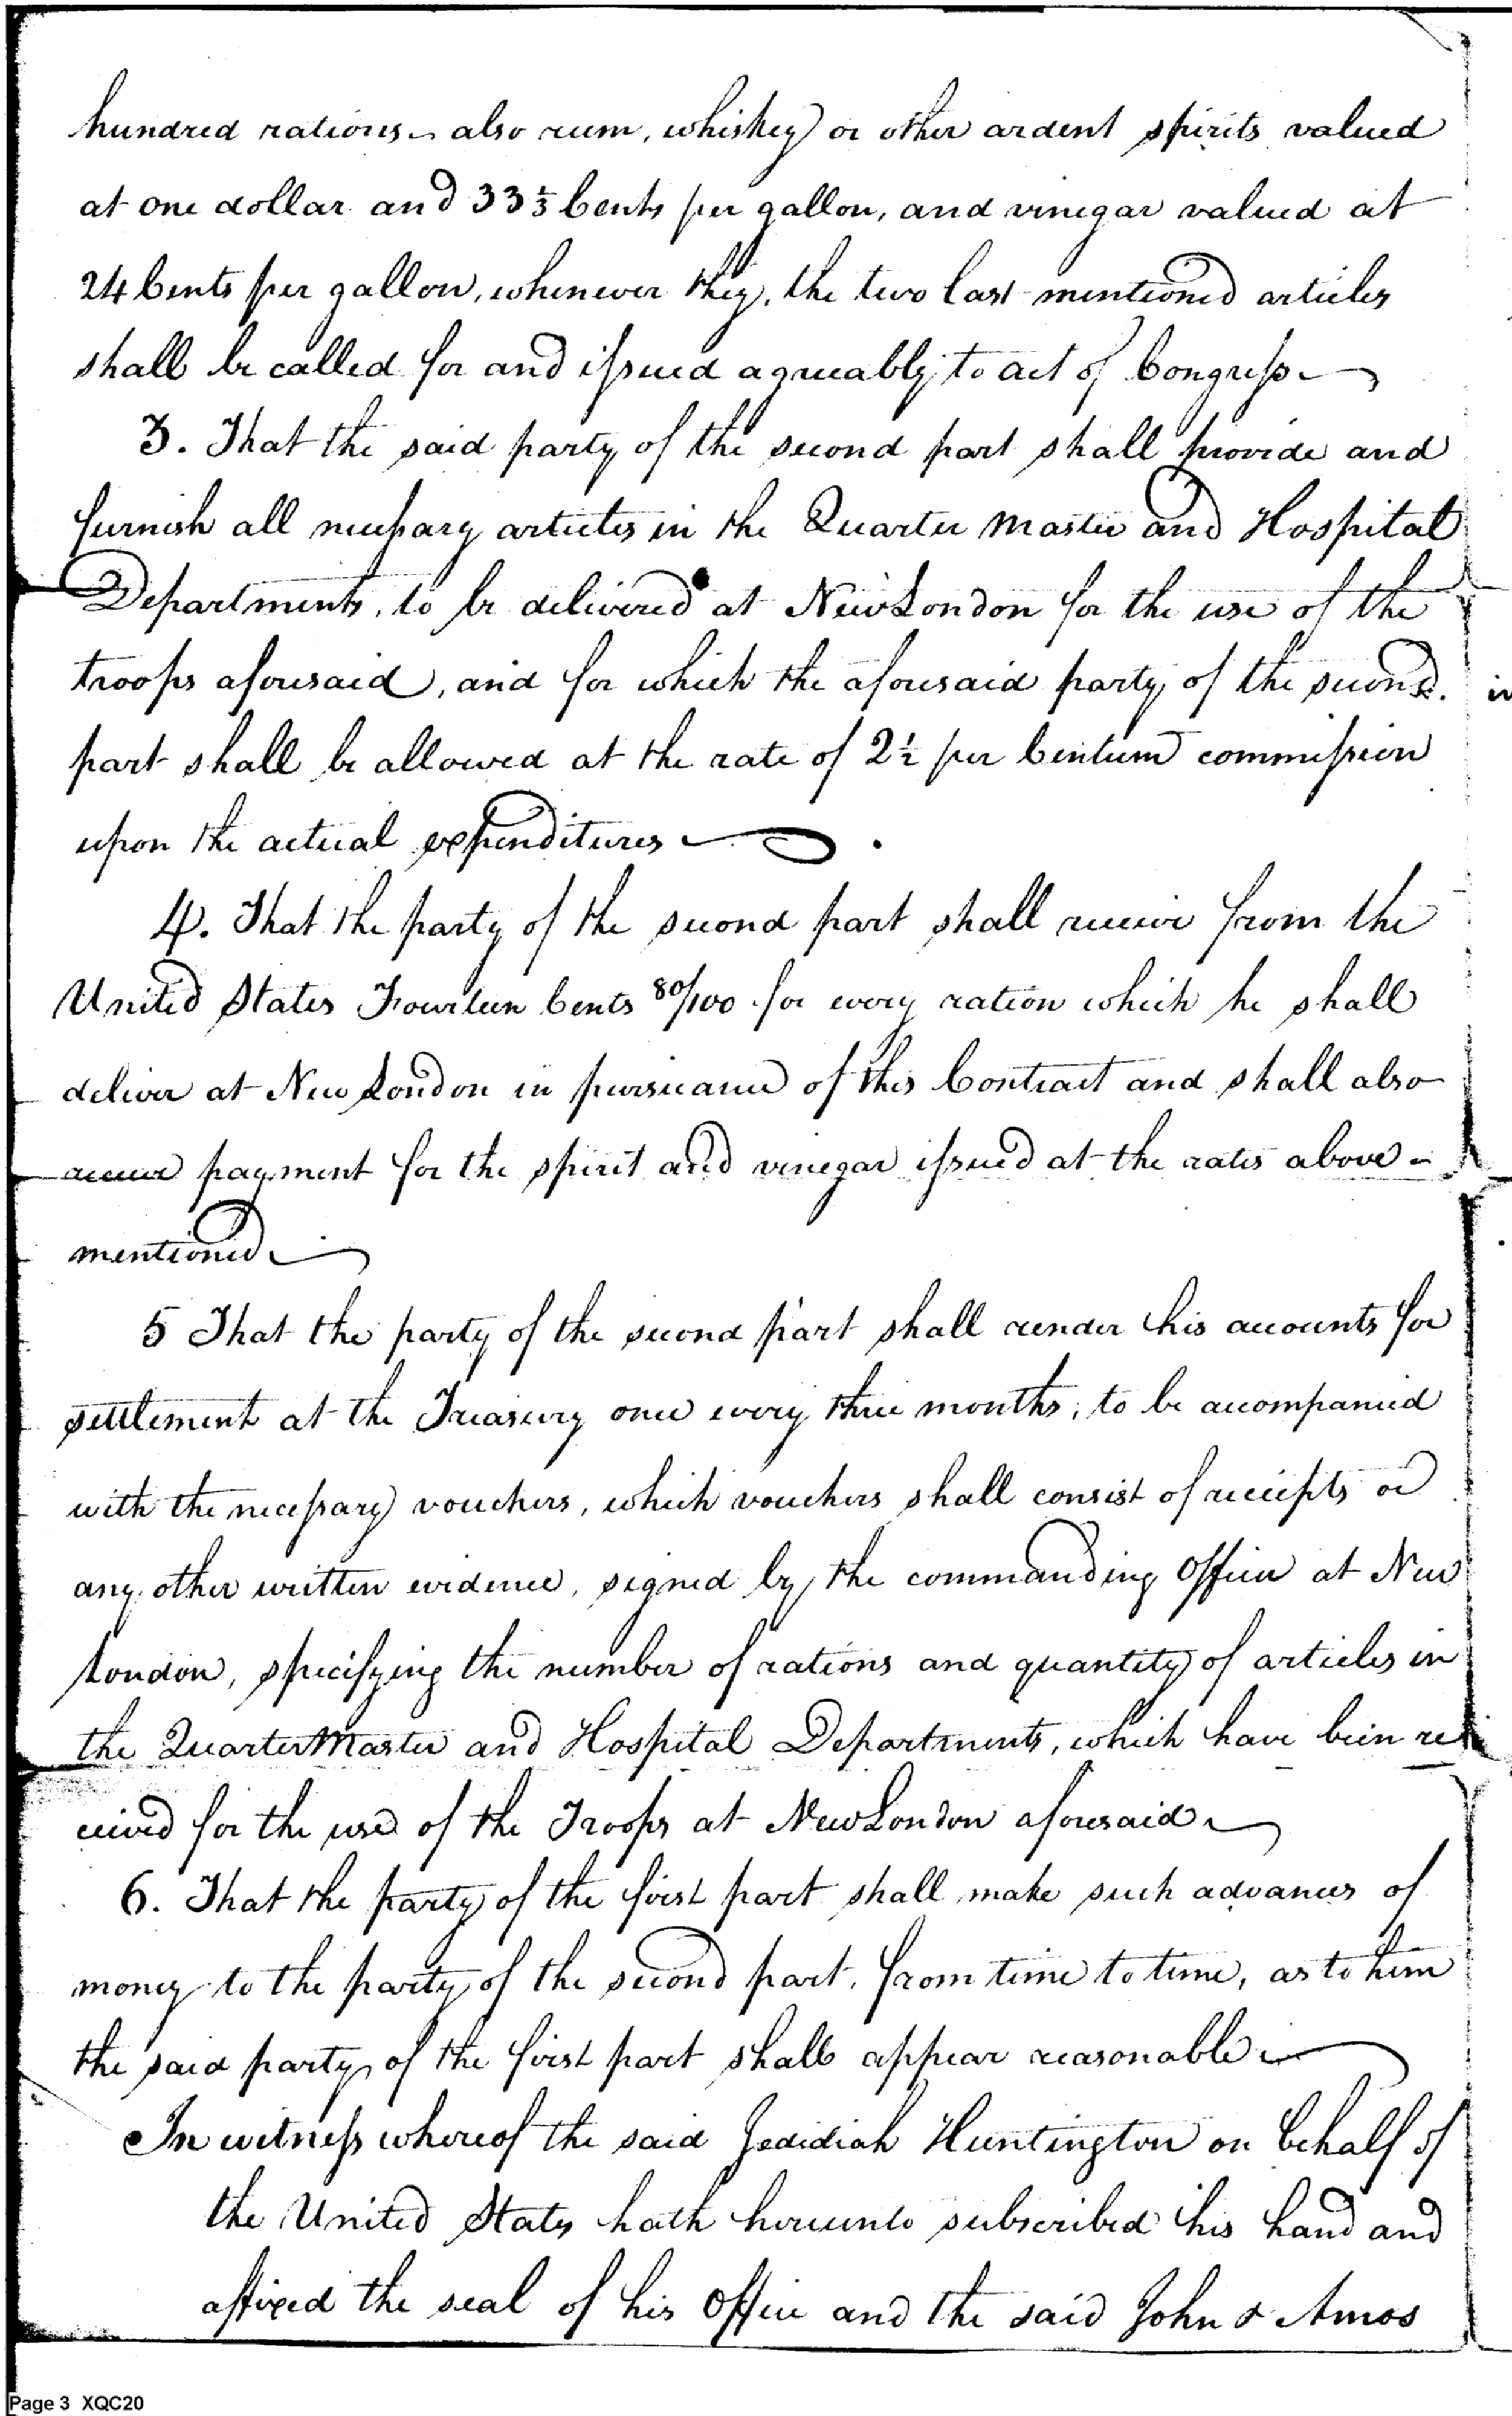 hundred rations - also rum, whiskey or other ardent spirits valued
at one dollar and 33⅓ Cents per gallon, and vinegar valued at
24 Cents per gallon, whenever they, the two last mentioned articles
shall be called for and issued agreeably to act of Congress -
3. That the said party of the second part shall provide and
furnish all necessary articles in the Quarter Master and Hospital
Departments, to be delivered at New London for the use of the
troops aforesaid, and for which the aforesaid party of the second
part shall be allowed at the rate of 2½ per Centum commission
upon the actual expenditures - .
4. That the party of the second part shall receive from the
United States Fourteen Cents 80/100 for every ration which he shall
deliver at New London in pursuance of this Contract and shall also
receive payment for the spirit and vinegar issued at the rates above -
mentioned -
5 That the party of the second part shall render his accounts for
settlement at the Treasury once every three months, to be accompanied
with the necessary vouchers, which vouchers shall consist of receipts or
any other written evidence, signed by the commanding Officer at New
London, specifying the number of rations and quantity of articles in
the QuarterMaster and Hospital Departments, which have been re
ceived for the use of the Troops at New London aforesaid -
6. That the party of the first part shall make such advances of
money to the party of the second part, from time to time, as to him
the said party of the first part shall appear reasonable -
In witness whereof the said Jedidiah Huntington on behalf of
the United States hath hereunto subscribed his hand and
affixed the seal of his Office and the said John & Amos
Page 3 XQC20